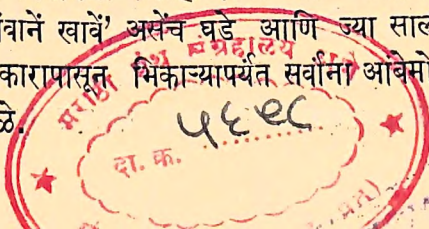 वानें खावें’ असेंच घडे आणि ज्या साल
कारापासून भिकाऱ्यापर्यंत सर्वांना आंबेमो
ळे.
मराठी ग्रंथ संग्रहालय
दा. क. ५६९८